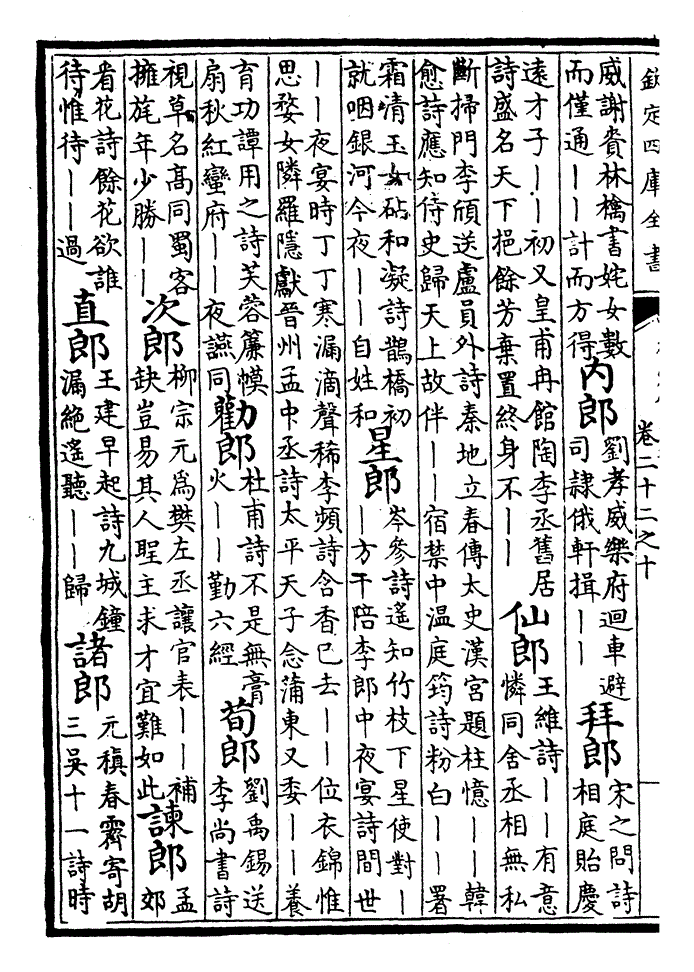 欽定四庫全書
卷二十二之十
威謝貴林檎書姹女數
而僅通——計而方得
内郎
劉孝威樂府迴車避
司隸俄軒揖——
拜郎
宋之問詩
相庭貽慶
遠才子——初又皇甫冉館陶李丞舊居
詩盛名天下挹餘芳棄置終身不——
仙郎
王維詩——有意
憐同舍丞相無私
斷掃門李頎送盧員外詩秦地立春傳太史漢宮題柱憶——韓
愈詩應知侍史歸天上故伴——宿禁中温庭筠詩粉白——署
霜清玉女砧和凝詩鵲橋初
就咽銀河今夜——自姓和
星郎
岑參詩遥知竹枝下星使對—
—方干陪李郎中夜宴詩間世
——夜宴時丁丁寒漏滴聲稀李頻詩含香已去——位衣錦惟
思婺女隣羅隱獻晉州孟中丞詩太平天子念蒲東又委——養
育功譚用之詩芙蓉簾幙
扇秋紅蠻府——夜讌同
勸郎
杜甫詩不是無膏
火——勤六經
荀郎
劉禹錫送
李尚書詩
視草名高同蜀客
擁旄年少勝——
次郎
柳宗元爲樊左丞讓官表——補
缺豈易其人聖主求才宜難如此
諫郎
孟
郊
看花詩餘花欲誰
待惟待——過
直郎
王建早起詩九城鐘
漏絶遥聽——歸
諸郎
元稹春霽寄胡
三吳十一詩時